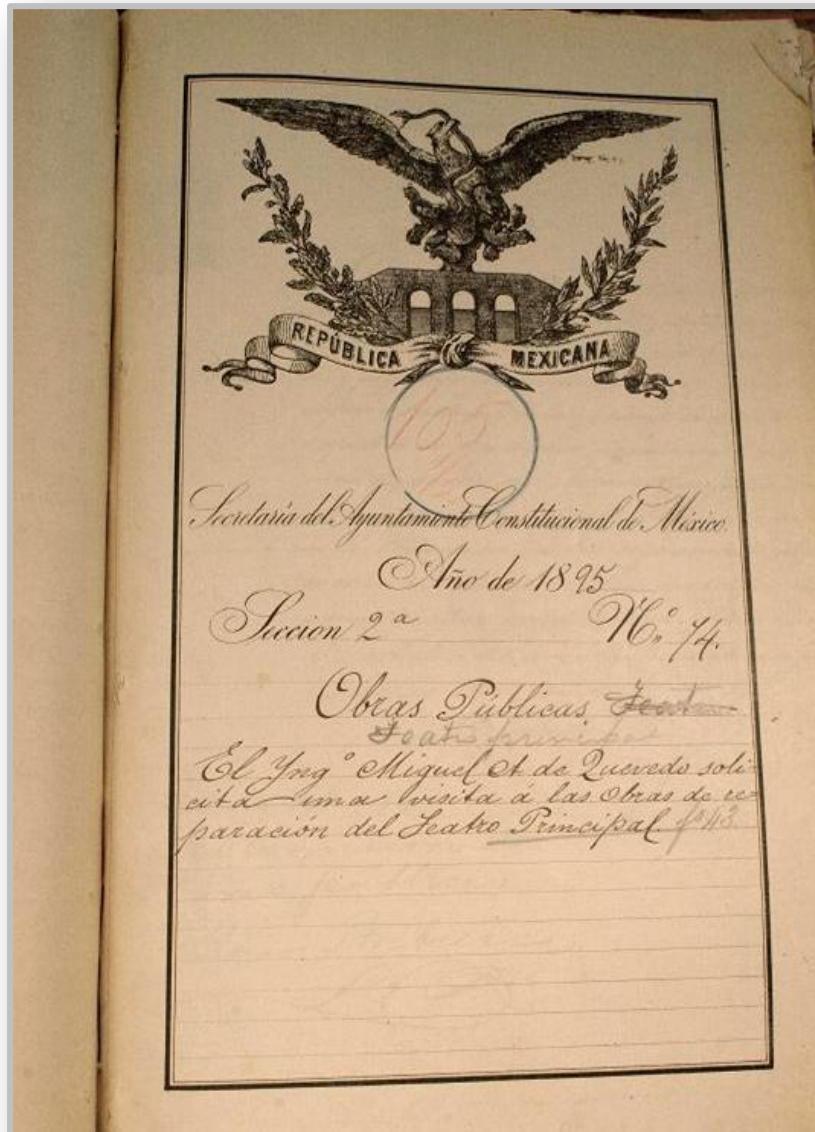 REPÚBLICA MEXICANA
105
Secretaría del Ayuntamiento Constitucional de México.
Año de 1895
Seccion 2a Nº 74.
Obras Públicas Teatro
Teatro principal
El Yngº Miguel A de Quevedo soli-
cita una visita á las Obras de re-
paración del Teatro Principal.